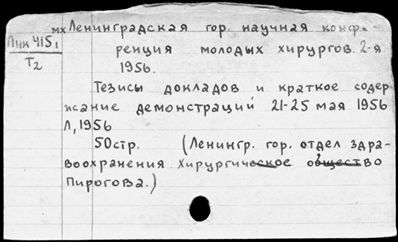 мх Ленинградская гор. научная конфе-
Лнк 415₁
ренция молодых хирургов. 2-я
Т2
1956.
Тезисы докладов и краткое содер
жание демонстраций 21-25 мая 1956
Л, 1956
50стр. (Ленингр. гор. отдел здра-
воохранения Хирургическое общество
Пирогова.)